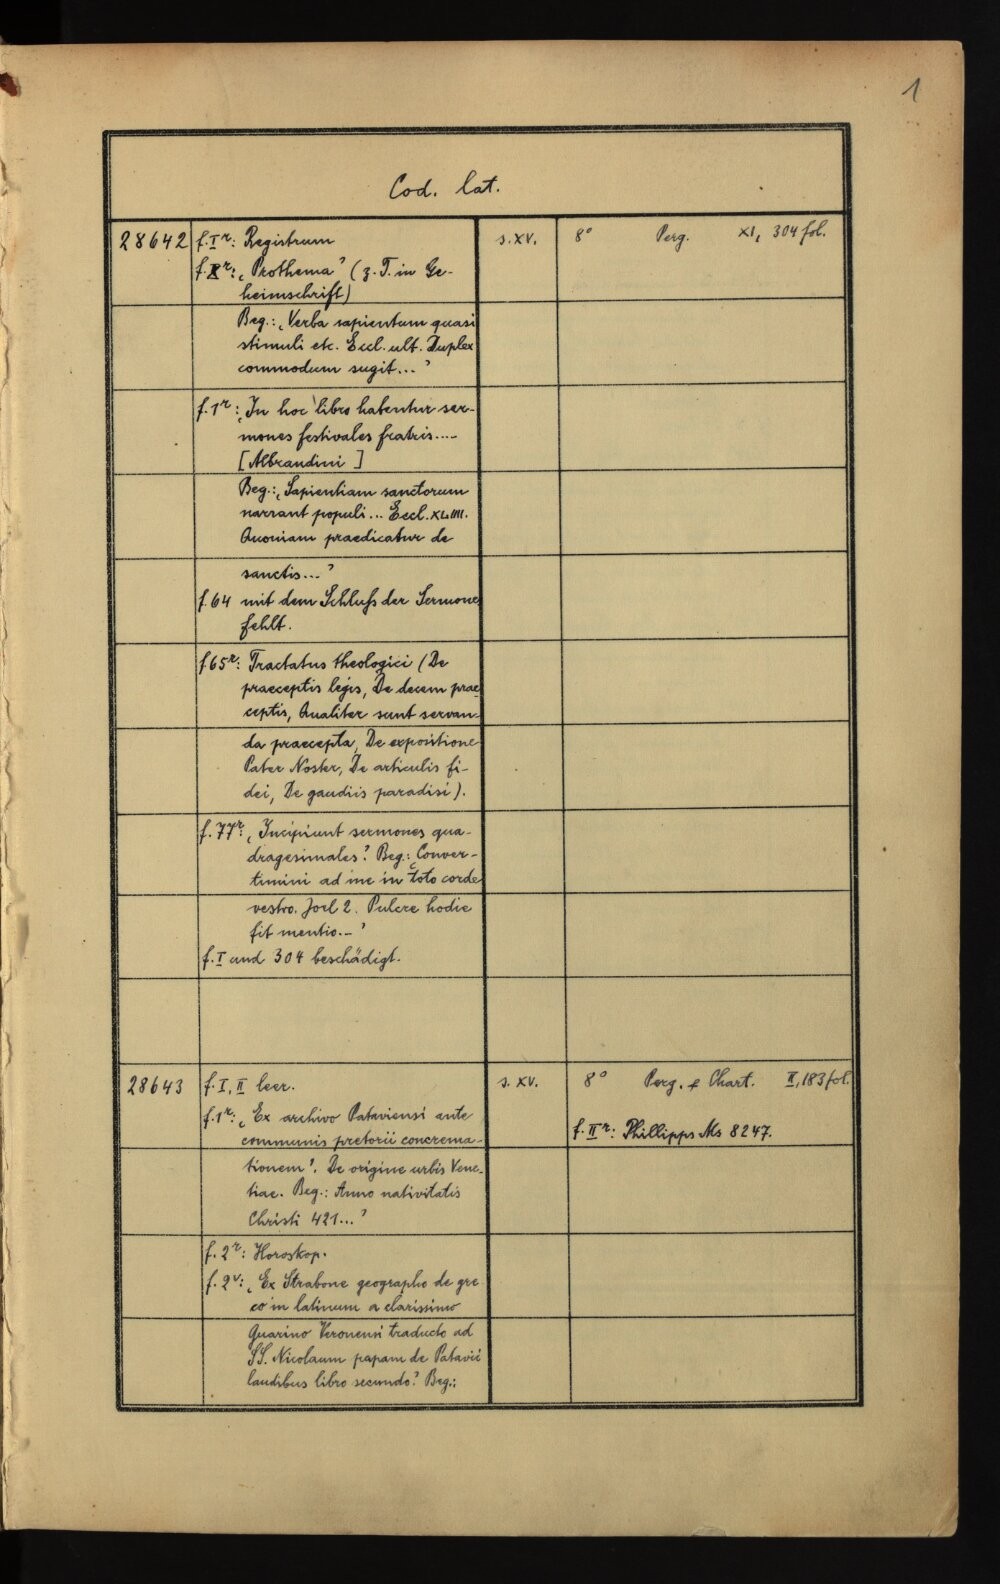 1
Cod. lat.
28642 f. Iʳ: Registrum s. XV. 8° Perg. XI, 304 fol.
f. Xʳ: ‚Prothema’ (z. T. in Ge-
heimschrift)
Beg.: ‚Verba sapientum quasi
stimuli etc. Eccl. ult. Duplex
commodum sugit...’
f. 1ʳ: ‚In hoc libro habentur ser-
mones festivales fratris....
[Albrandini ]
Beg.: ‚Sapientiam sanctorum
narrant populi... Eccl. XLIIII.
Quoniam praedicatur de
sanctis...’
f. 64 mit dem Schluß der Sermones
fehlt.
f. 65ʳ: Tractatus theologici (De
praeceptis legis, De decem prae-
ceptis, Qualiter sunt servan-
da praecepta, De expositione
Pater Noster, De articulis fi-
dei, De gaudiis paradisi).
f. 77ʳ: ‚Incipiunt sermones qua-
dragesimales’. Beg.: ‚Conver-
timini ad me in toto corde
vestro. Joel 2. Pulcre hodie
fit mentio...’
f. I und 304 beschädigt.
28643 f. I, II leer. s. XV. 8° Perg. & Chart. II, 183 fol.
f. 1ʳ: ‚Ex archivo Pataviensi ante f. IIʳ: Phillipps Ms 8247.
communis pretorii concrema-
tionem’. De origine urbis Vene-
tiae. Beg.: Anno nativitatis
Christi 421...’
f. 2ʳ: Horoskop.
f. 2ᵛ: ‚Ex Strabone geographo de gre
co in latinum a clarissimo
Guarino Veronensi traducto ad
SS. Nicolaum papam de Patavii
laudibus libro secundo’. Beg.: